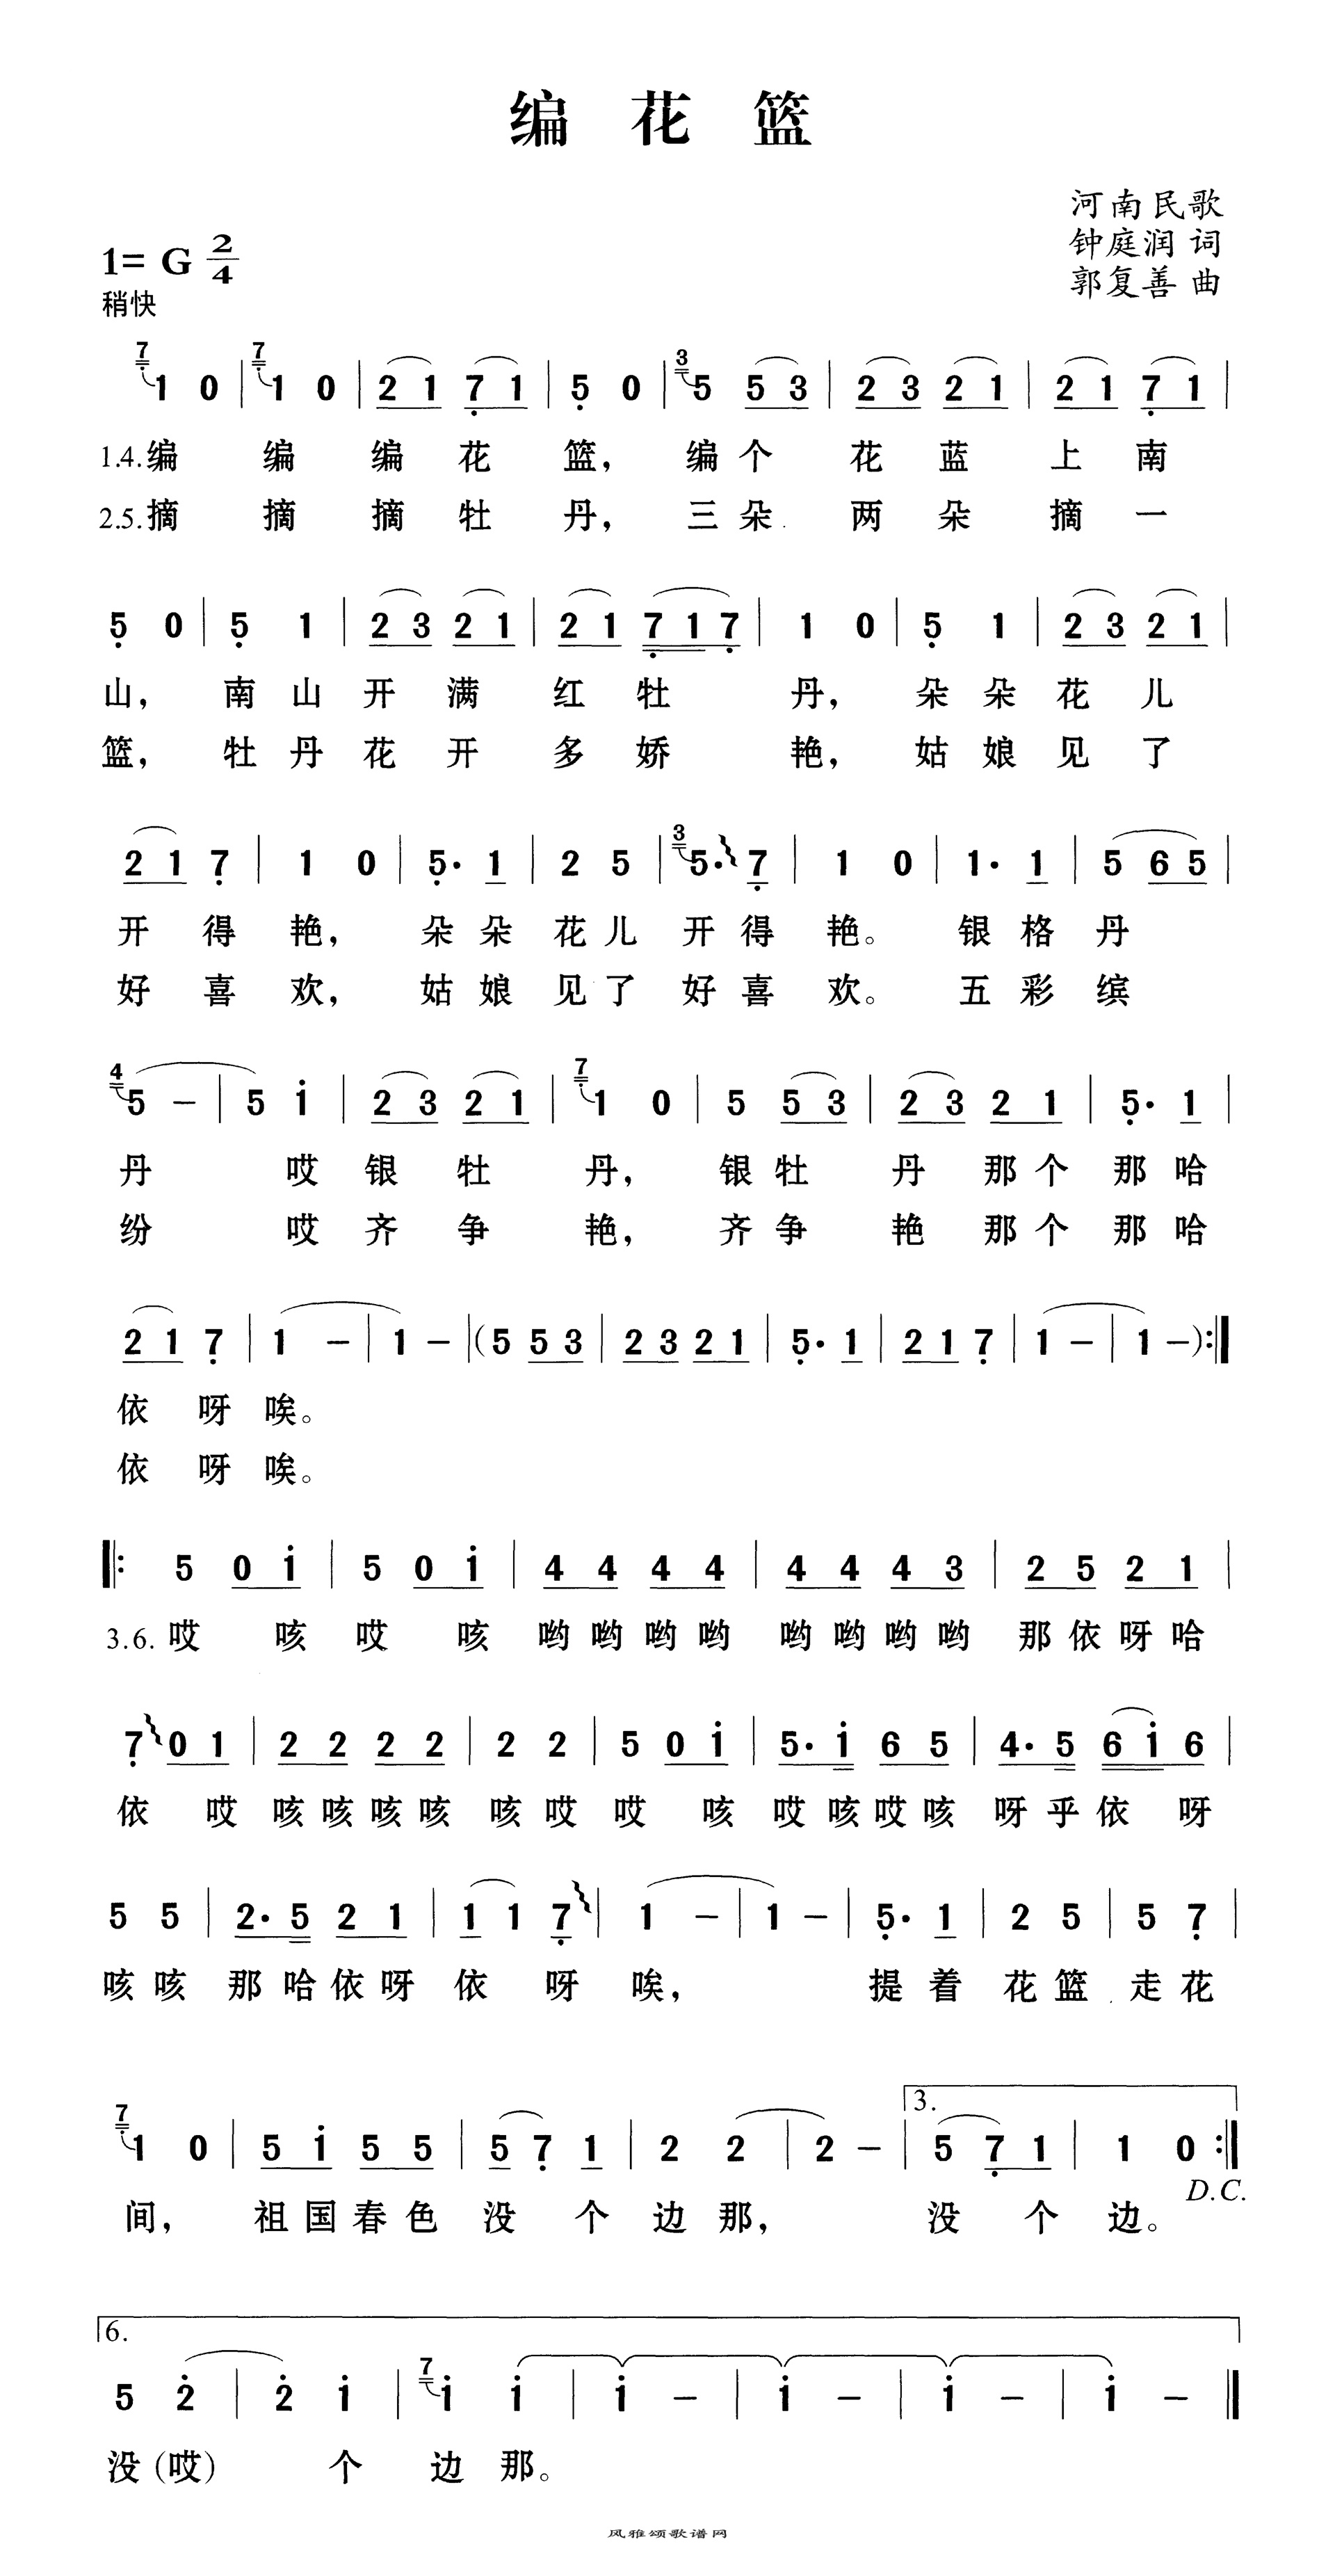 编 花 篮
河南民歌
钟庭润 词
郭复善 曲
1= G 2/4
稍快
7 1 0 | 7 1 0 | 2 1 7 1 | 5 0 | 3 5 5 3 | 2 3 2 1 | 2 1 7 1 |
1.4. 编 编 编 花 篮, 编 个 花 蓝 上 南
2.5. 摘 摘 摘 牡 丹, 三 朵 两 朵 摘 一
5 0 | 5 1 | 2 3 2 1 | 2 1 7 1 7 | 1 0 | 5 1 | 2 3 2 1 |
山, 南 山 开 满 红 牡 丹, 朵 朵 花 儿
篮, 牡 丹 花 开 多 娇 艳, 姑 娘 见 了
2 1 7 | 1 0 | 5· 1 | 2 5 | 3 5· 7 | 1 0 | 1· 1 | 5 6 5 |
开 得 艳, 朵 朵 花 儿 开 得 艳。 银 格 丹
好 喜 欢, 姑 娘 见 了 好 喜 欢。 五 彩 缤
4 5 – | 5 i | 2 3 2 1 | 7 1 0 | 5 5 3 | 2 3 2 1 | 5· 1 |
丹 哎 银 牡 丹, 银 牡 丹 那 个 那 哈
纷 哎 齐 争 艳, 齐 争 艳 那 个 那 哈
2 1 7 | 1 – | 1 – | (5 5 3 | 2 3 2 1 | 5· 1 | 2 1 7 | 1 – | 1 –) :|
依 呀 唉。
依 呀 唉。
|: 5 0 i | 5 0 i | 4 4 4 4 | 4 4 4 3 | 2 5 2 1 |
3.6. 哎 咳 哎 咳 哟 哟 哟 哟 哟 哟 哟 哟 那 依 呀 哈
7 0 1 | 2 2 2 2 | 2 2 | 5 0 i | 5· i 6 5 | 4· 5 6 i 6 |
依 哎 咳 咳 咳 咳 咳 哎 哎 咳 哎 咳 哎 咳 呀 乎 依 呀
5 5 | 2· 5 2 1 | 1 1 7 | 1 – | 1 – | 5· 1 | 2 5 | 5 7 |
咳 咳 那 哈 依 呀 依 呀 唉, 提 着 花 篮 走 花
7 1 0 | 5 i 5 5 | 5 7 1 | 2 2 | 2 – | 3. 5 7 1 | 1 0 :|
D.C.
间, 祖 国 春 色 没 个 边 那, 没 个 边。
6.
5 2 | 2 i | 7 i i | i – | i – | i – | i – ‖
没 (哎) 个 边 那。
风雅颂歌谱网